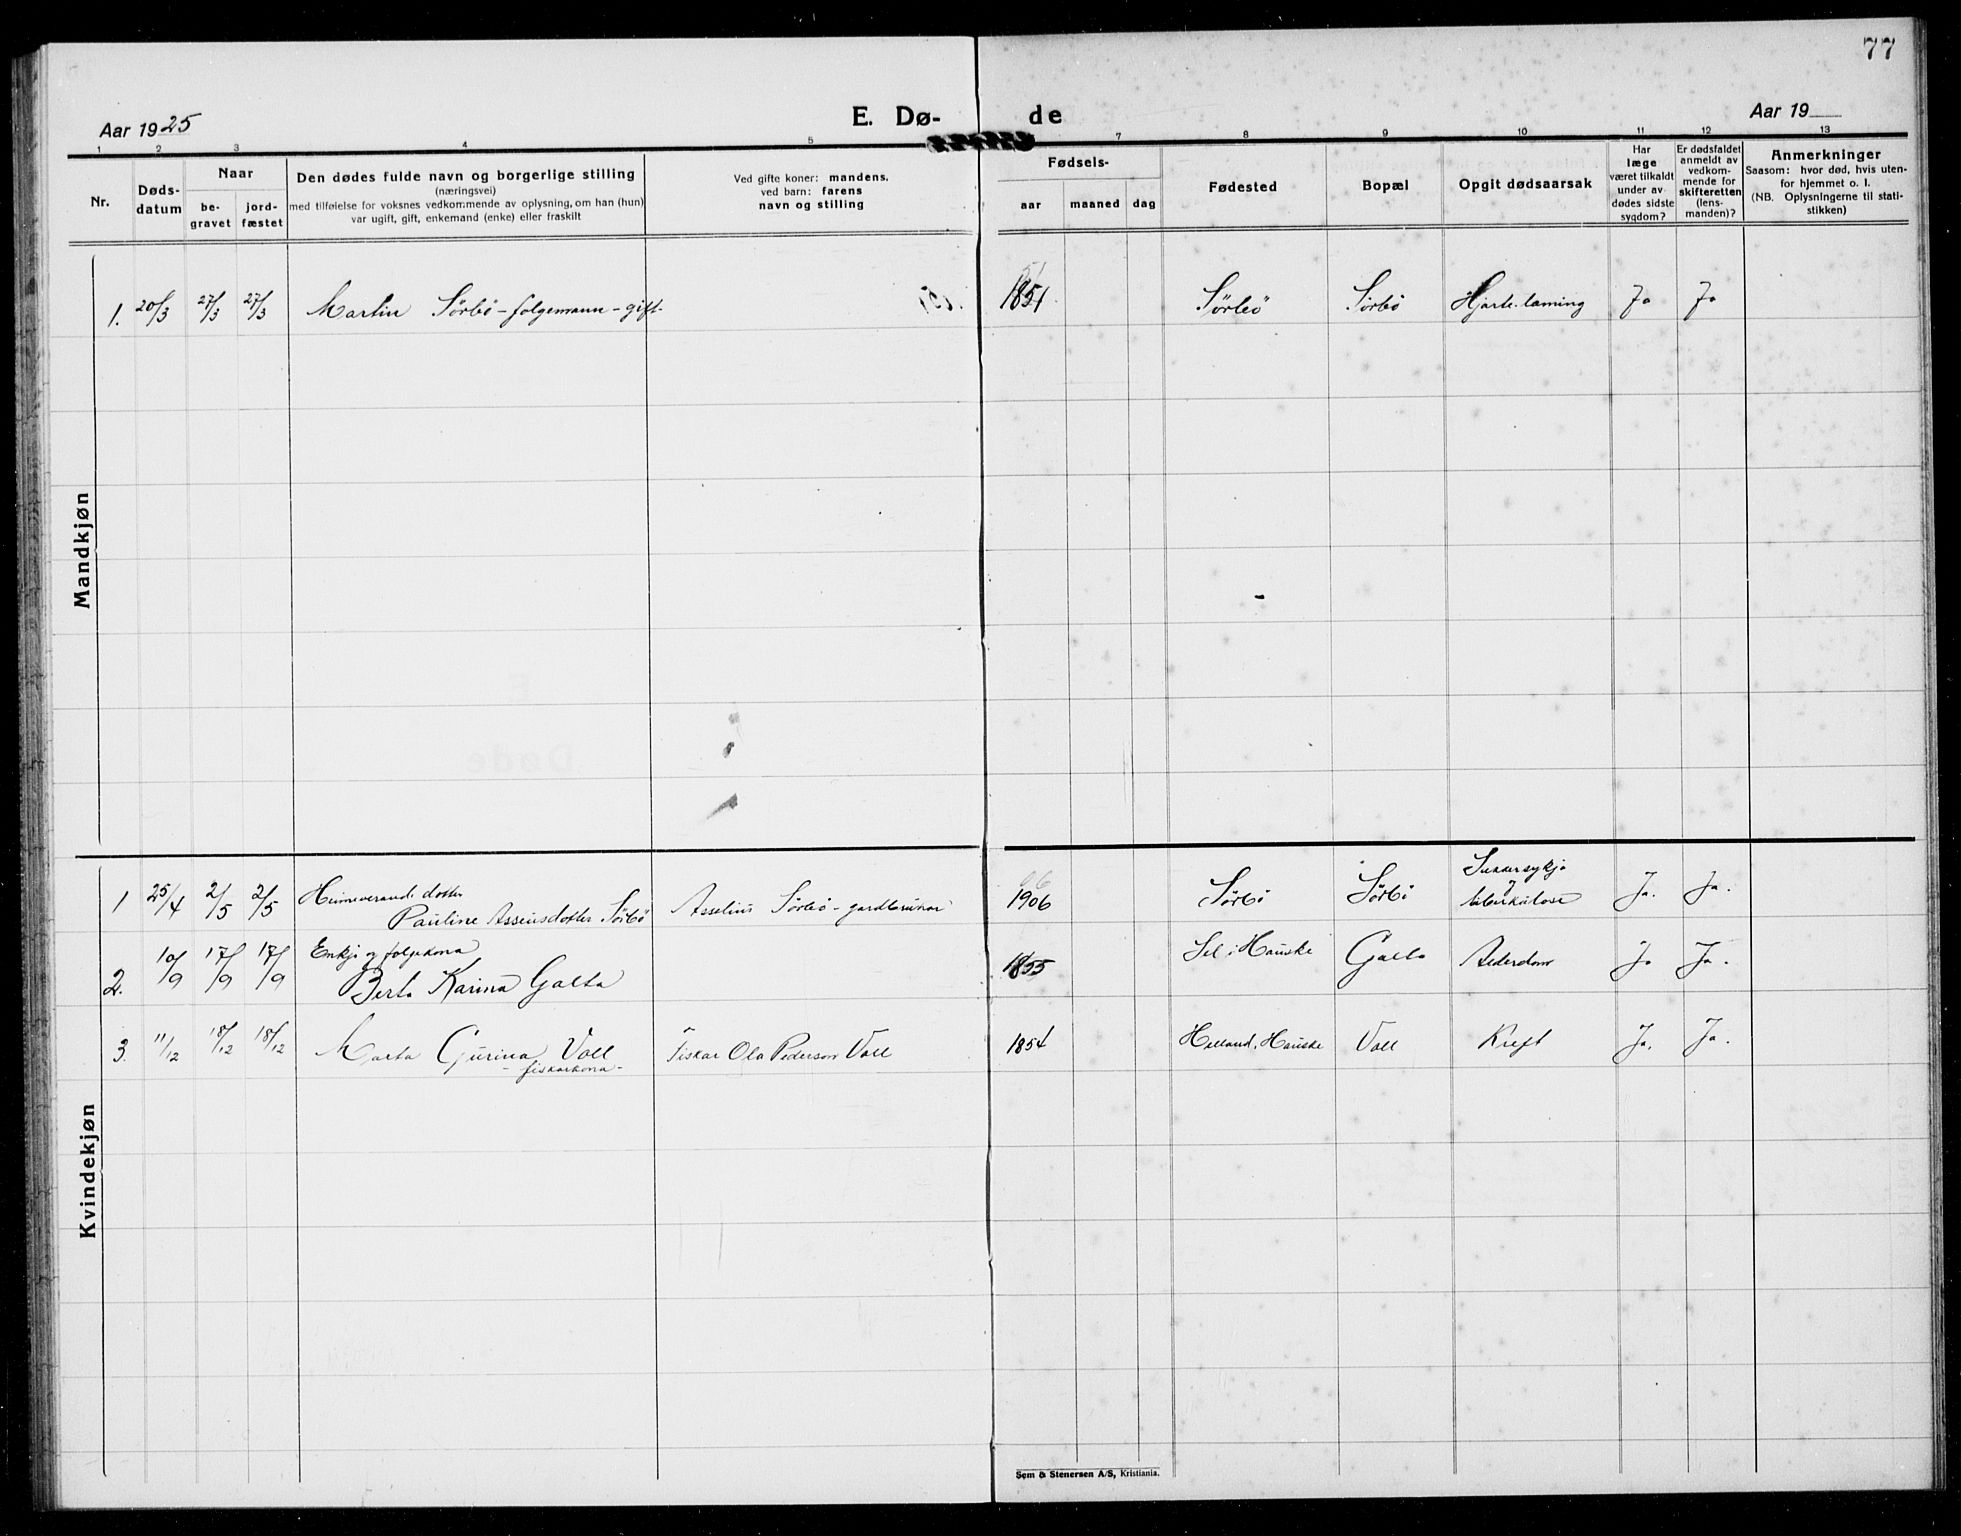 77
Aar 1925
E. Dø-
de
Aar 19
1 2 3 4 5 7 8 9 10 11 12 13
Nr.
Døds-
datum
Naar
be-
gravet
jord-
fæstet
Den dødes fulde navn og borgerlige stilling
(næringsvei)
med tilføielse for voksnes vedkommende av oplysning, om han (hun)
var ugift, gift, enkemand (enke) eller fraskilt
Ved gifte koner: mandens.
ved barn: farens
navn og stilling
Fødsels-
aar maaned dag
Fødested
Bopæl
Opgit dødsaarsak
Har
læge
været tilkaldt
under av-
dødes sidste
sygdom?
Er dødsfaldet
anmeldt av
vedkom-
mende for
skifteretten
(lens-
manden)?
Anmerkninger
Saasom: hvor død, hvis uten-
for hjemmet o. l.
(NB. Oplysningerne til stati-
stikken)
Mandkjøn
1. 20/3 27/3 27/3 Martin Sörbö - folgemann - gift. 1851 Sörbö Sörbö Hjarte-laming Ja Ja
Kvindekjøn
1 25/4 2/5 2/5 Heimeverand. dotter
Pauline Asseiusdotter Sörbö Asselius Sörbö - gardbrukar 1906 Sörbö Sörbö Sukkersykja
og
tuberkulose Ja. Ja.
2. 10/9 17/9 17/9 Enkje og folgekona
Berta Karina Galta 1855 Sel i Hauske Galta Alderdom Ja Ja.
3. 11/12 18/12 18/12 Marta Gurina Voll Fiskar Ola Pederson Voll 1854 Helland, Hauske Voll Kreft Ja. Ja.
- fiskarkona -
Sem & Stenersen A/S, Kristiania.